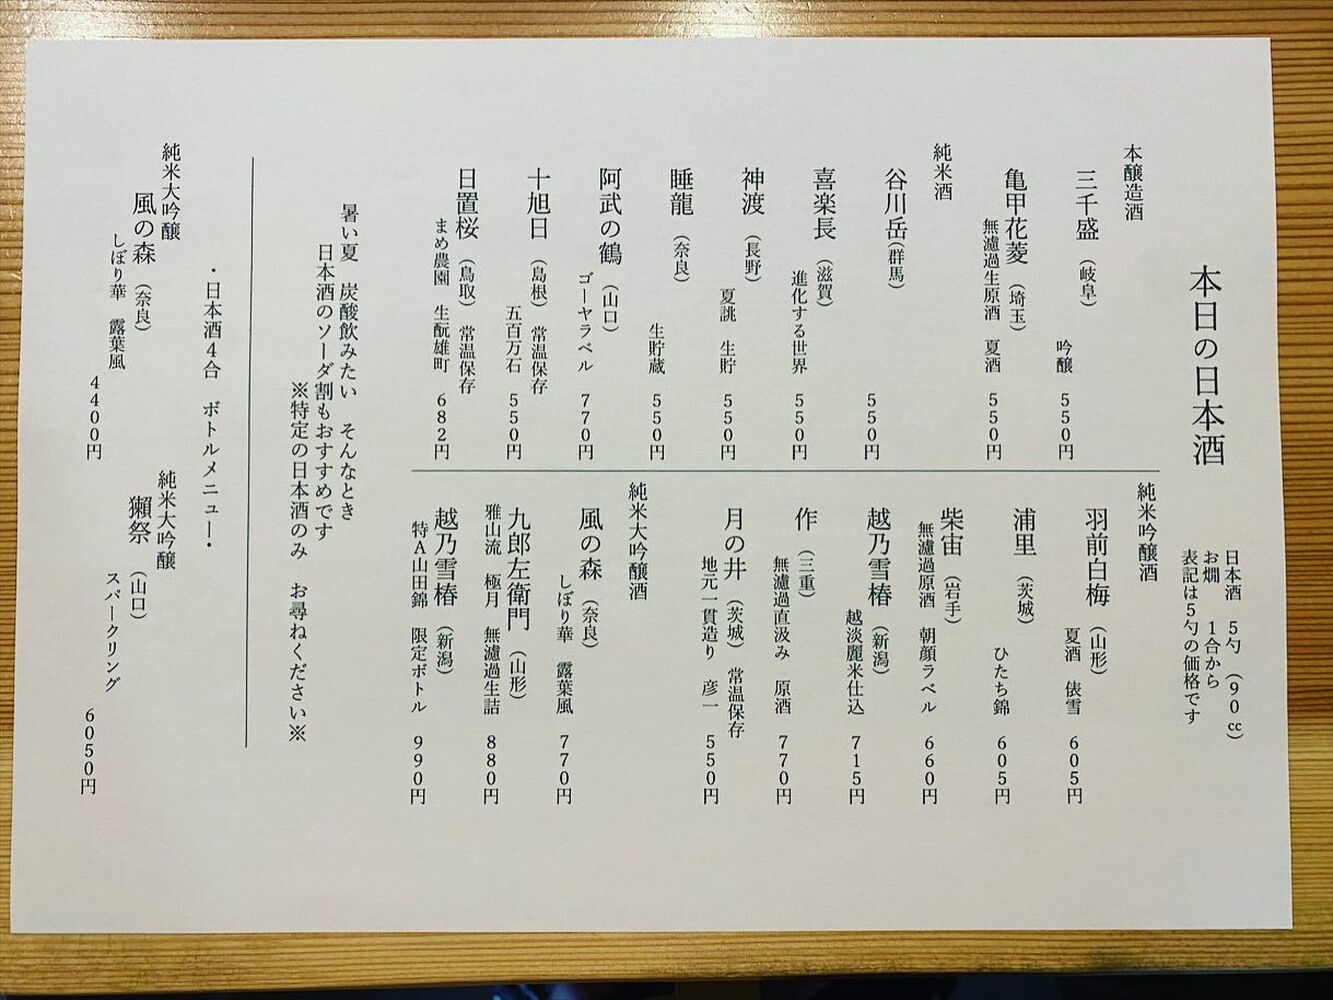 本日の日本酒
日本酒 5勺 (90㏄)
お燗 1合から
表記は5勺の価格です
本醸造酒
三千盛 (岐阜)
吟醸 550円
亀甲花菱 (埼玉)
無濾過生原酒 夏酒 550円
純米酒
谷川岳(群馬)
550円
喜楽長 (滋賀)
進化する世界 550円
神渡 (長野)
夏誂 生貯 550円
睡龍 (奈良)
生貯蔵 550円
阿武の鶴 (山口)
ゴーヤラベル 770円
十旭日 (島根) 常温保存
五百万石 550円
日置桜 (鳥取) 常温保存
まめ農園 生酛雄町 682円
純米吟醸酒
羽前白梅 (山形)
夏酒 俵雪 605円
浦里 (茨城)
ひたち錦 605円
柴宙 (岩手)
無濾過原酒 朝顔ラベル 660円
越乃雪椿 (新潟)
越淡麗米仕込 715円
作 (三重)
無濾過直汲み 原酒 770円
月の井 (茨城) 常温保存
地元一貫造り 彦一 550円
純米大吟醸酒
風の森 (奈良)
しぼり華 露葉風 770円
九郎左衛門 (山形)
雅山流 極月 無濾過生詰 880円
越乃雪椿 (新潟)
特A山田錦 限定ボトル 990円
暑い夏 炭酸飲みたい そんなとき
日本酒のソーダ割もおすすめです
※特定の日本酒のみ お尋ねください※
・日本酒4合 ボトルメニュー・
純米大吟醸
風の森 (奈良)
しぼり華 露葉風
4400円
純米大吟醸
獺祭 (山口)
スパークリング
6050円